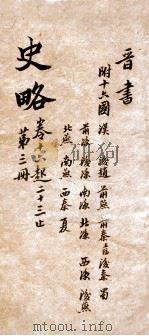 晉書
附十六國 漢 後趙 前燕 前秦 後秦 蜀
前涼 後涼 南涼 北涼 西涼 後燕
北燕 南燕 西秦 夏
史略
卷十 起二十三止
第三冊